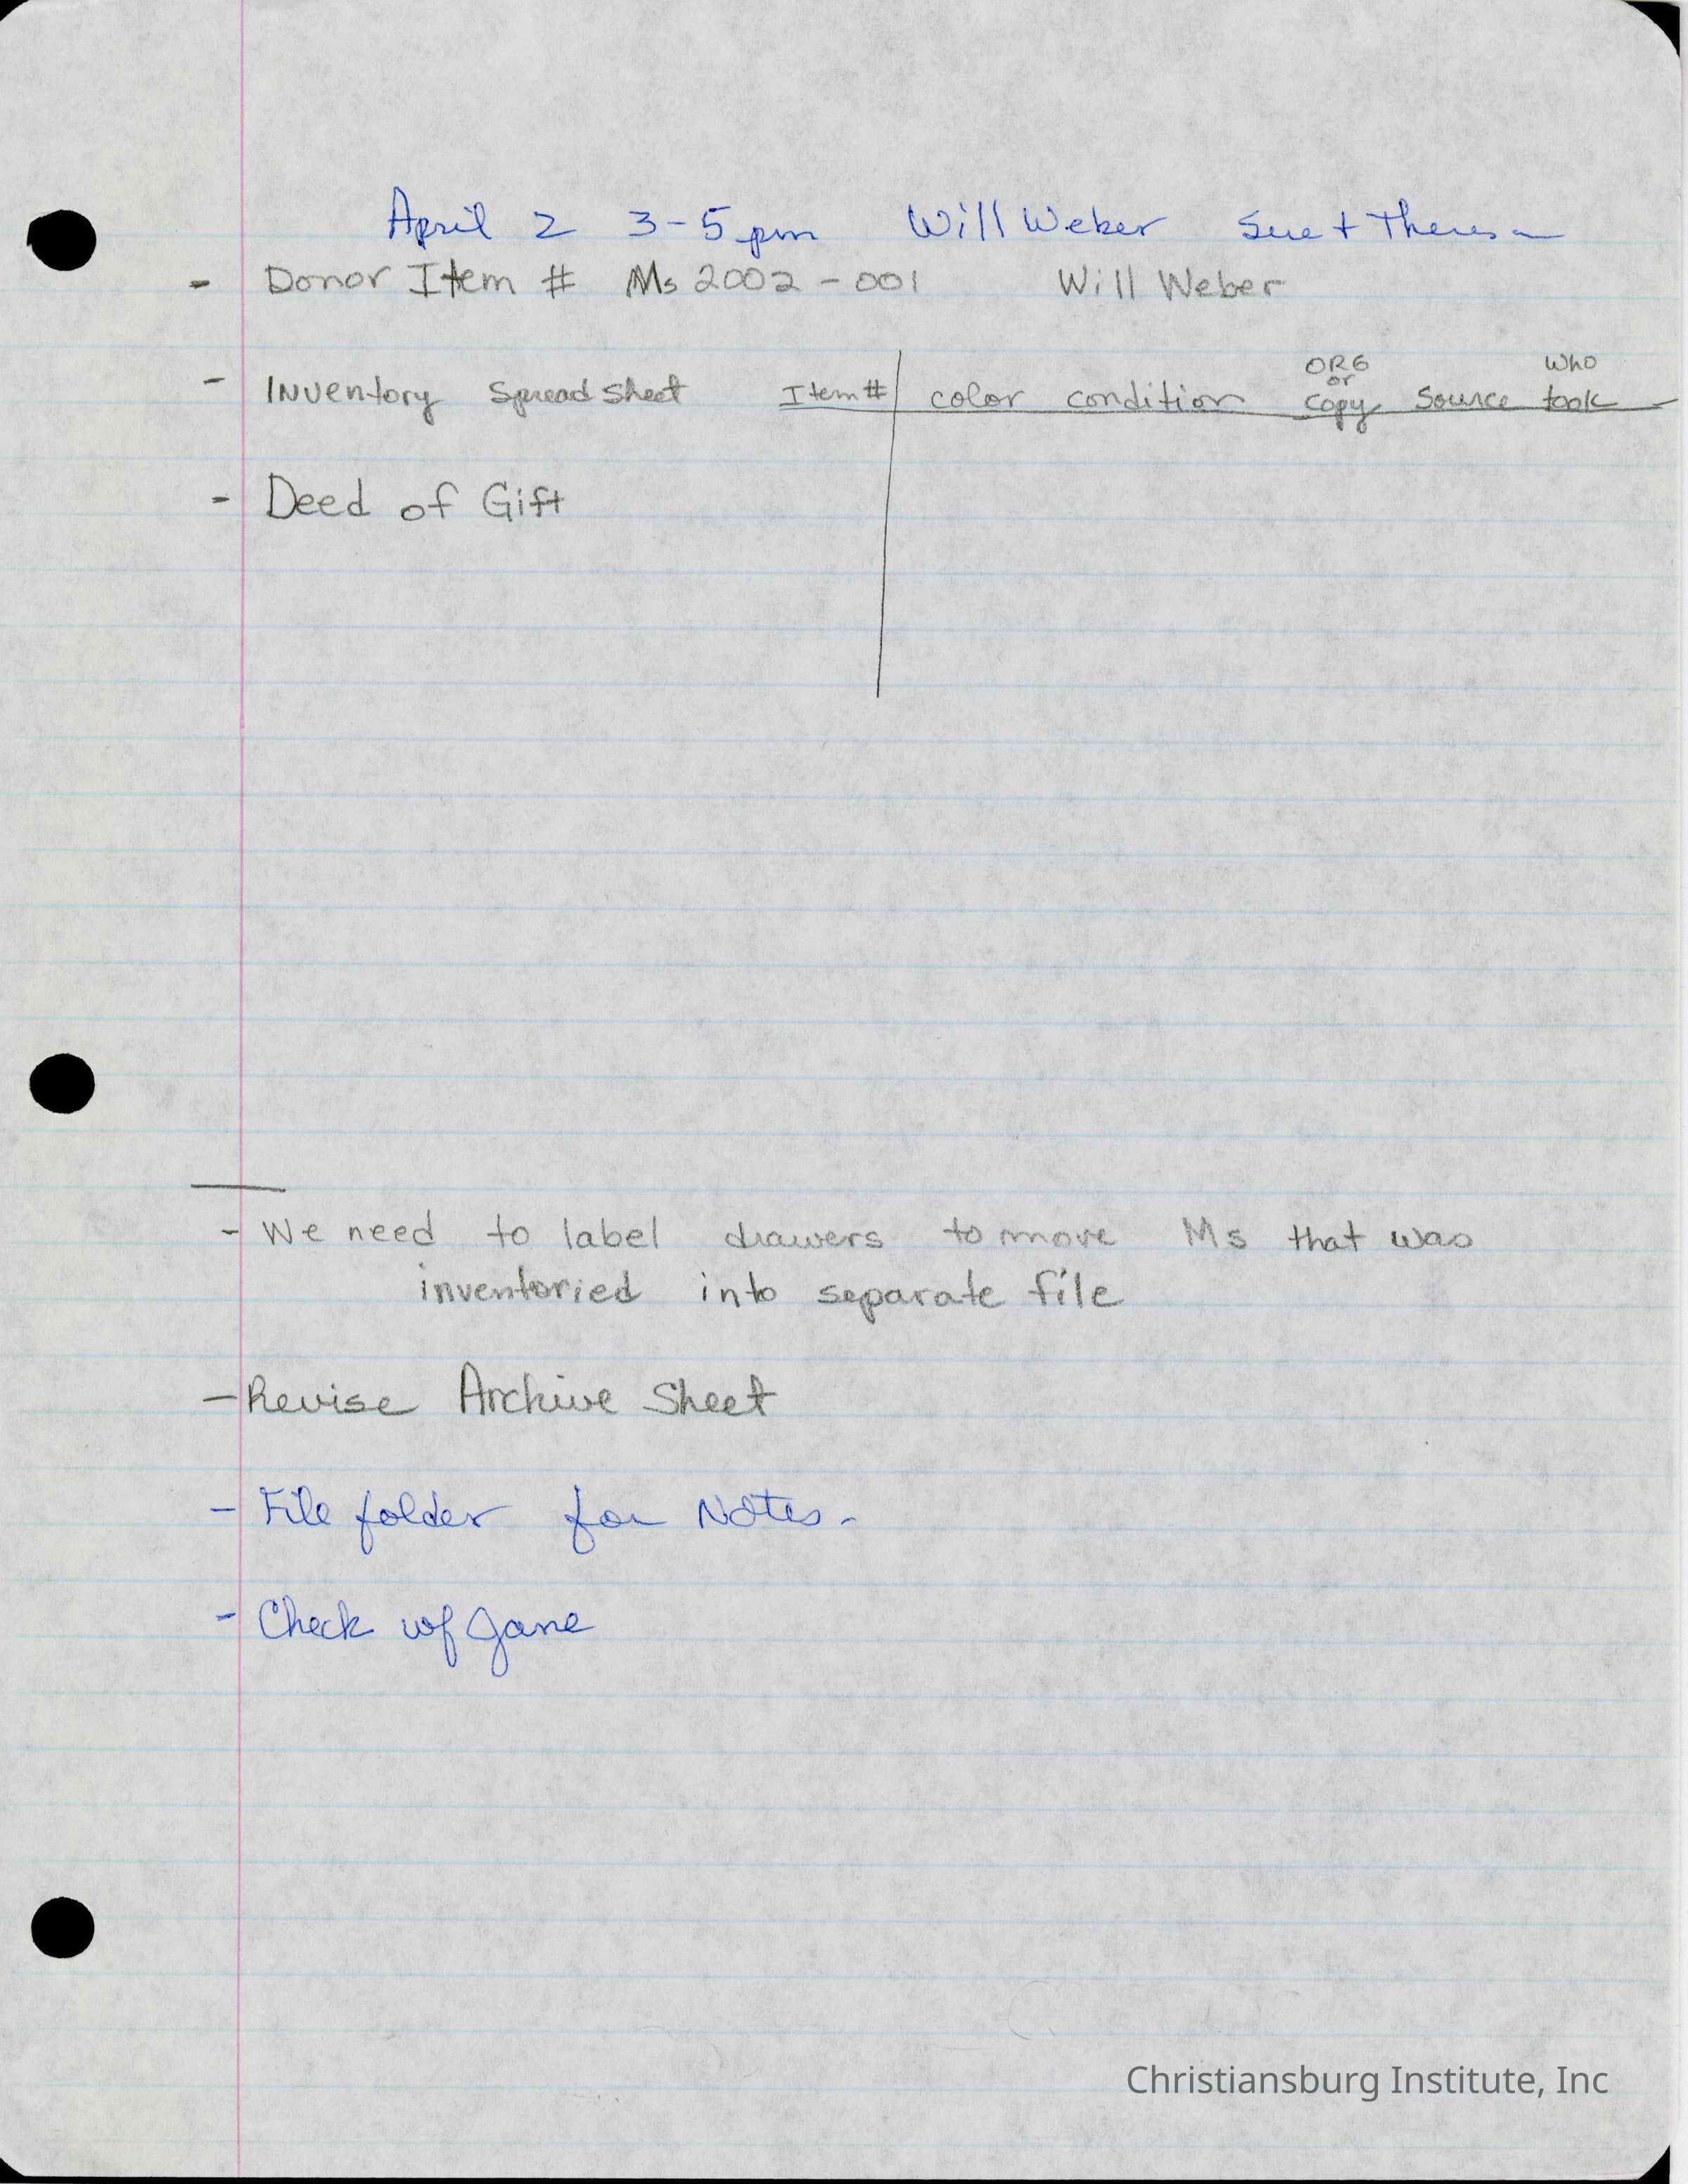 April 2 3-5 pm Will Weber Sue + Theresa
- Donor Item # Ms 2002-001 Will Weber
- Inventory Spreadsheet Item # color condition ORG or copy Source who took
- Deed of Gift
- We need to label drawers to move Ms that was
inventoried into separate file
- Revise Archive Sheet
- File folder for Notes.
- Check w/ Jane
Christiansburg Institute, Inc